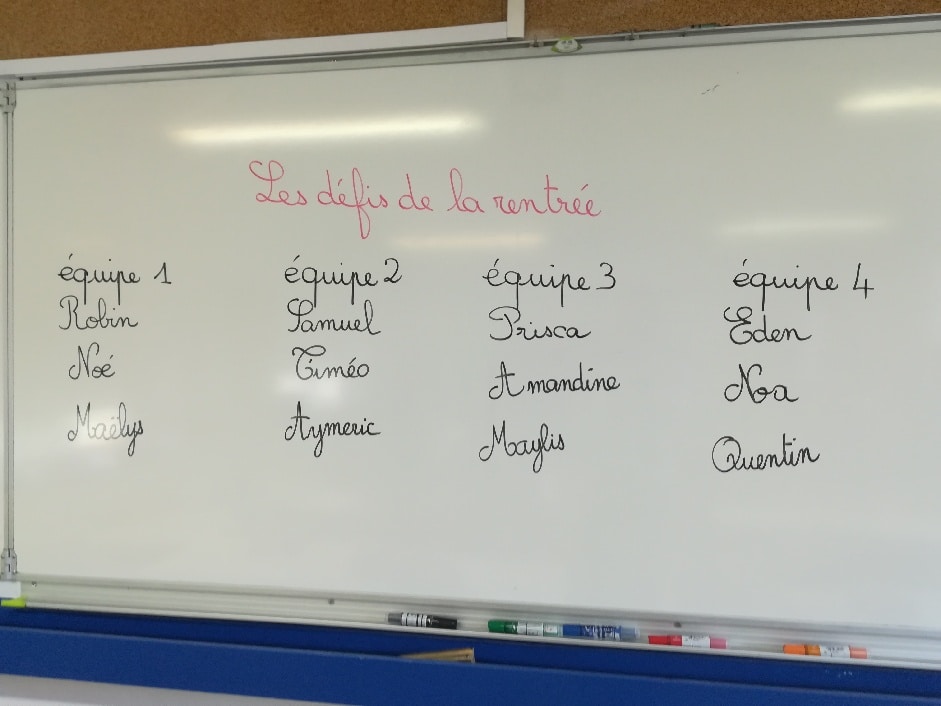 Les défis de la rentrée
équipe 1
Robin
Noé
Maëlys
équipe 2
Samuel
Timéo
Aymeric
équipe 3
Prisca
Amandine
Maylis
équipe 4
Eden
Noa
Quentin